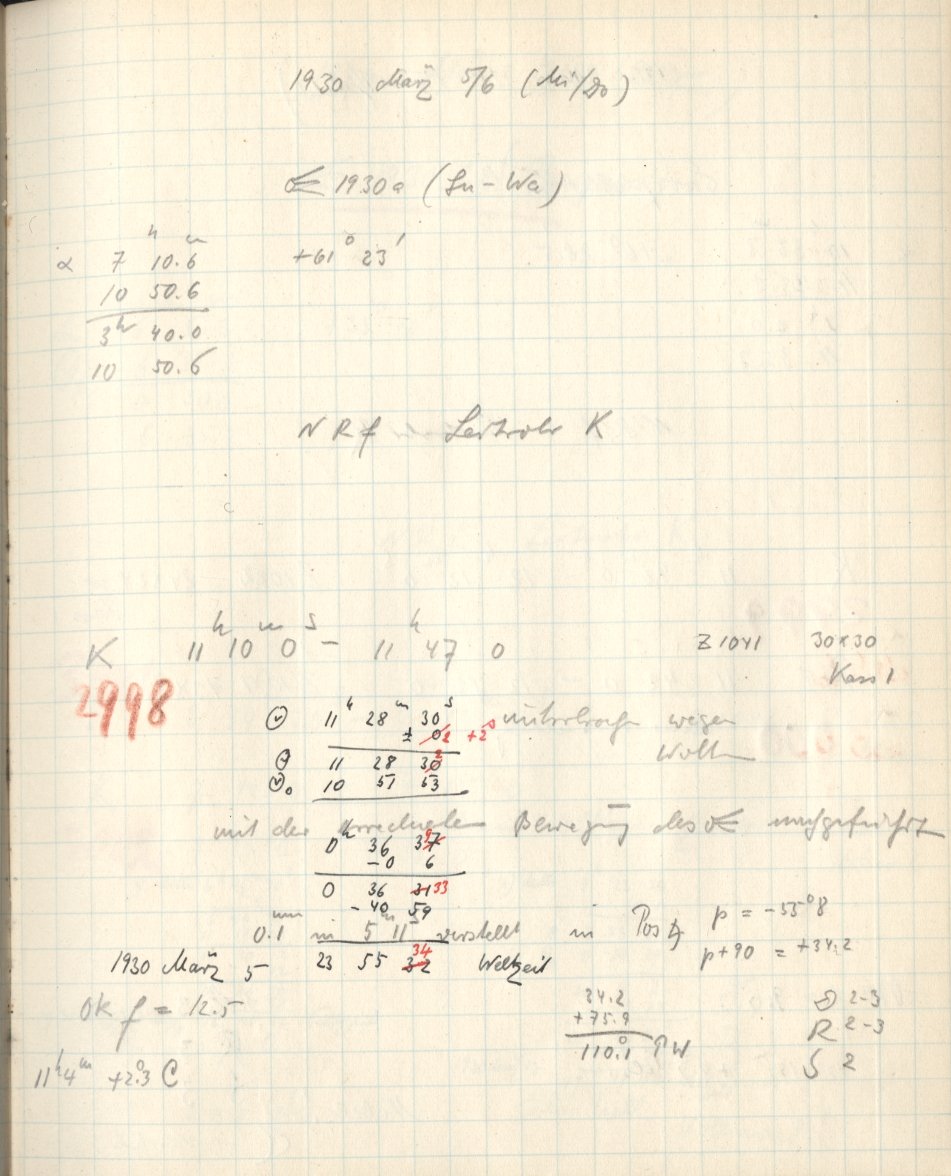 1930 März 5/6 (Mi/Do)
1930a (Su-Wa)
h m
α 7 10.6 +61° 23'
10 50.6
3h 40.0
10 50.6
N R f Leitrohr K
K 11h 10m 0s - 11h 47 0 Z 1041 30x30
Kass 1
2998
11h 28m 30s unterbrochen wegen
± 0 2 +2s Wolken
11 28 30 2
10 51 53
mit der errechneten Bewegung des nachgeführt
0h 36 37 9
-0 6
0 36 31 33
- 40 59
0.1 mm in 5m 11s verstellt in Pos p = -55°8
p+90 = +34.2
1930 März 5 23 55 32 34 Weltzeit
Ok f = 12.5
34.2 D 2-3
+75.9 R 2-3
110°.1 PW S 2
11h4m +2°.3 C